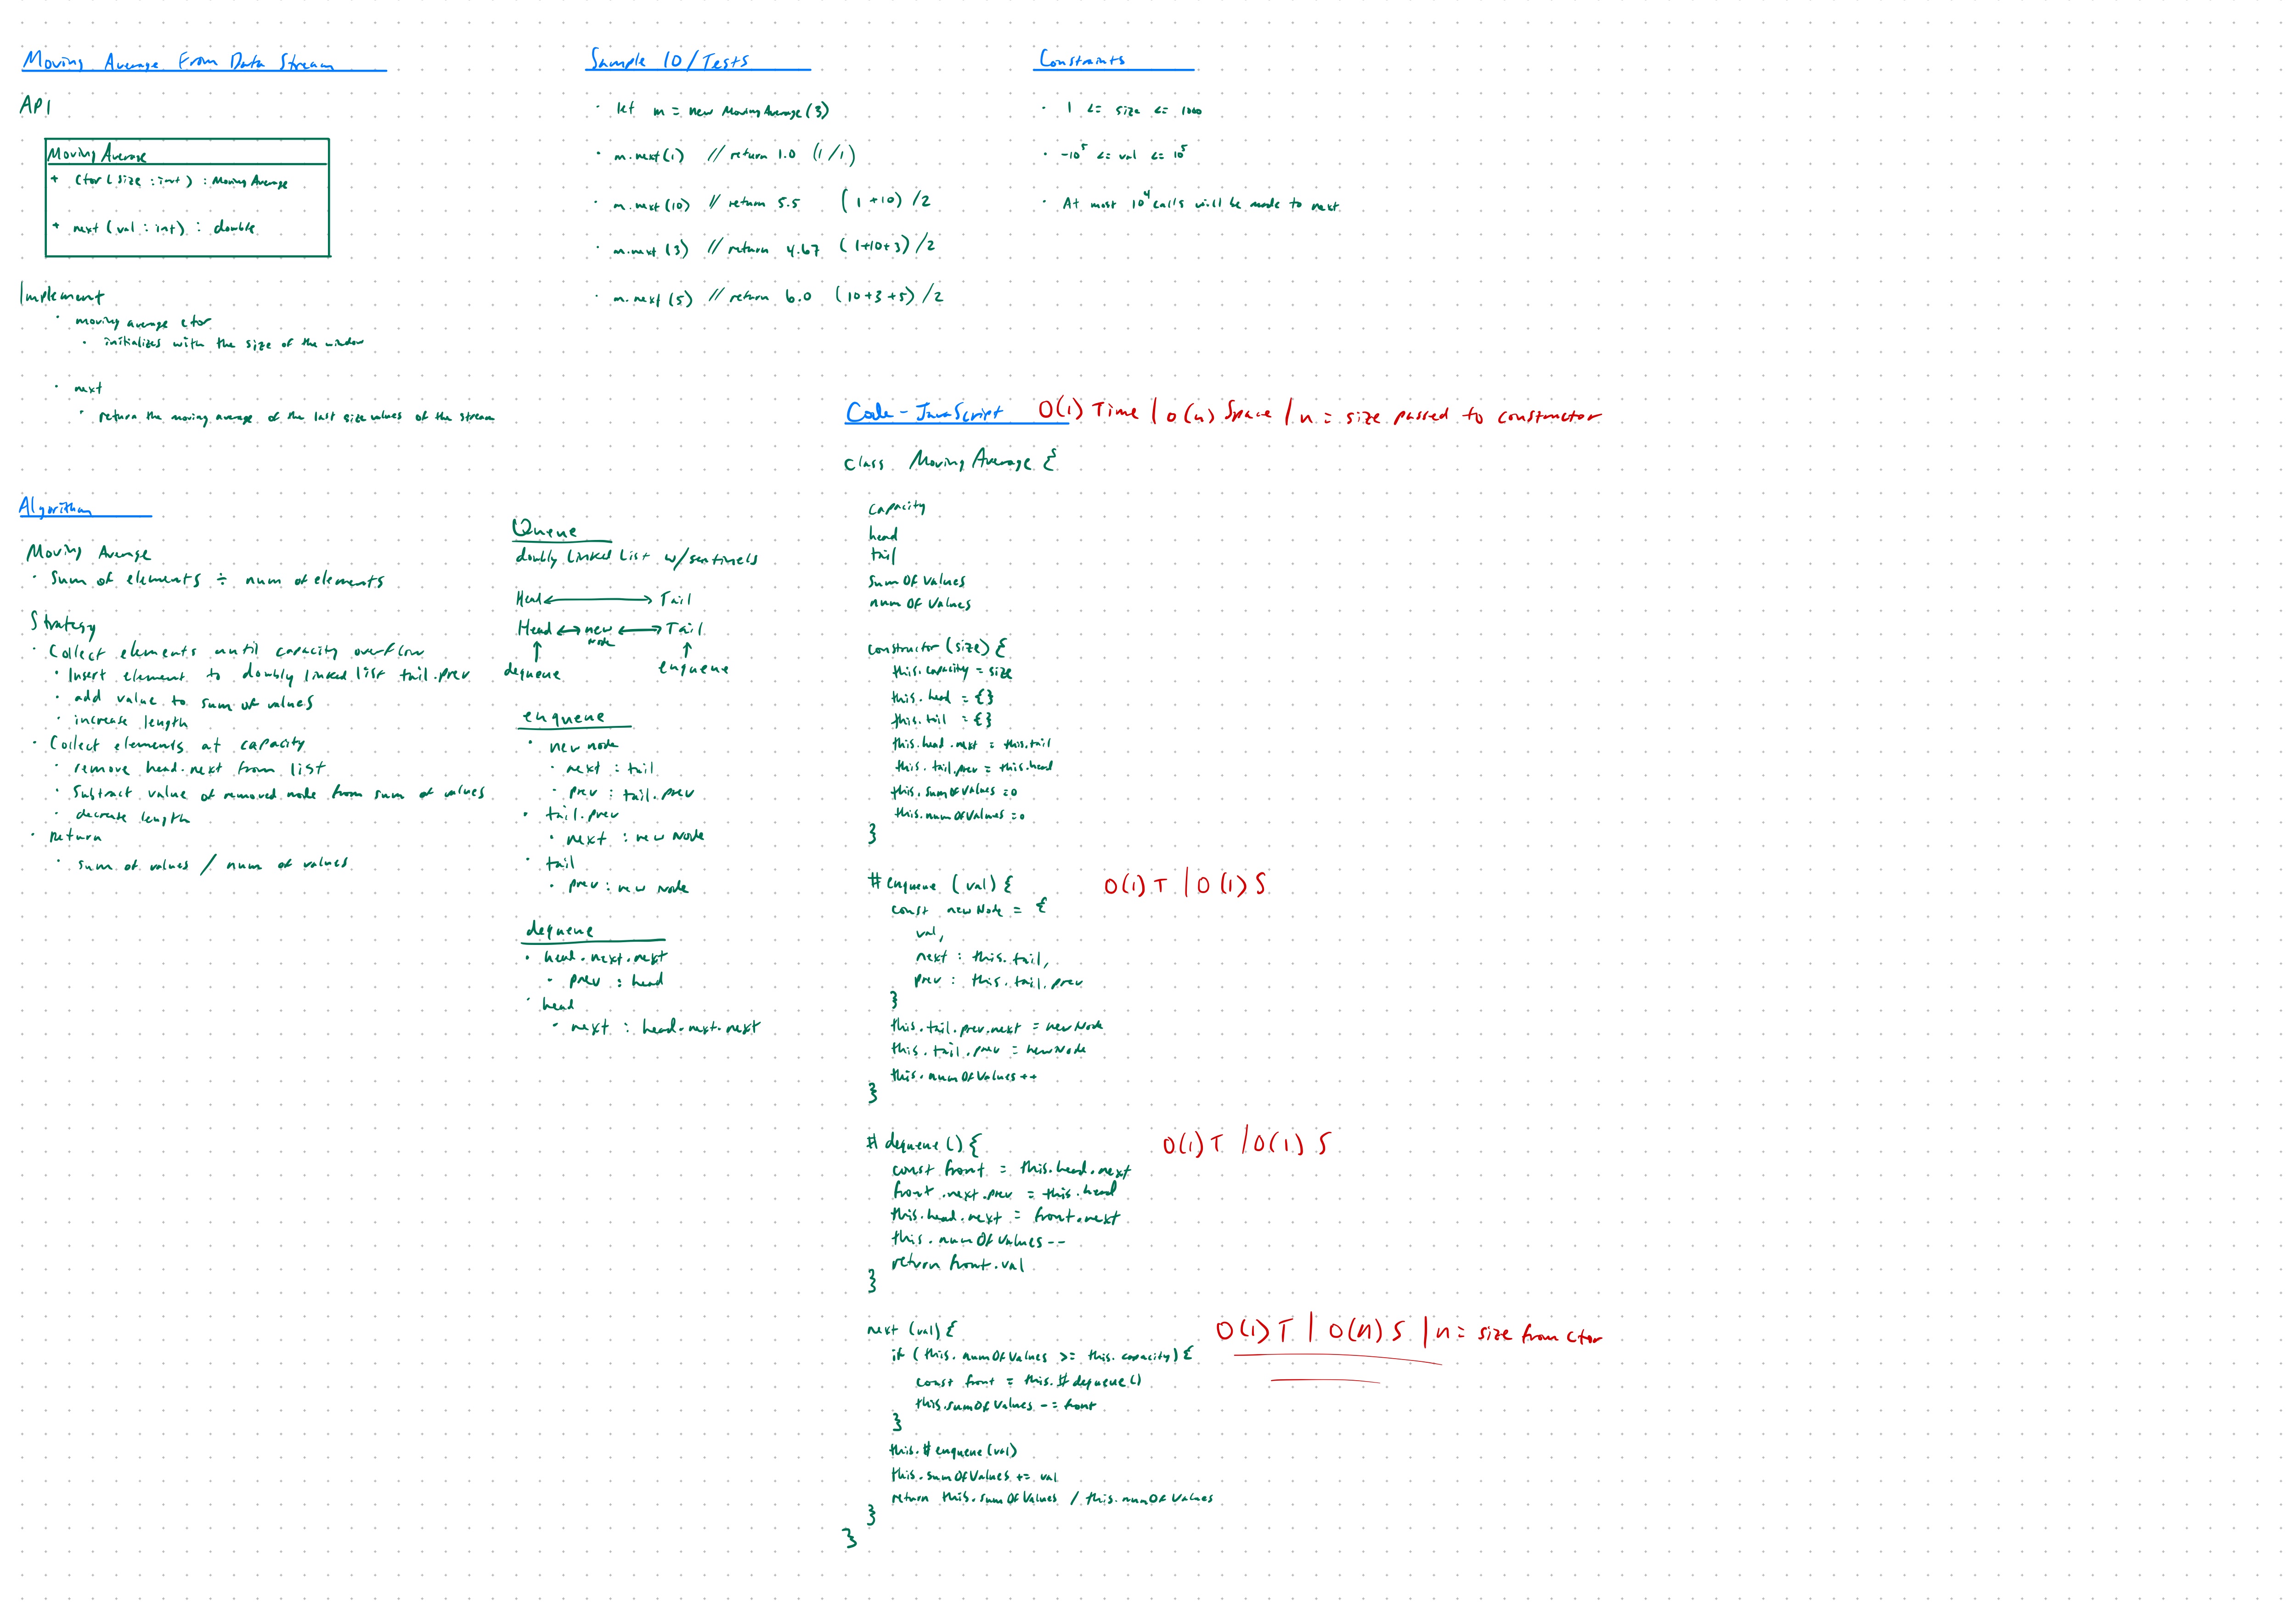 Moving Average From Data Stream
API
Moving Average
+ Ctor (size : int) : Moving Average
+ next (val : int) : double
Implement
· moving average ctor
· initializes with the size of the window
· next
· return the moving average of the last size values of the stream
Sample IO/Tests
· let m = new Moving Average (3)
· m.next(1) // return 1.0 (1/1)
· m.next (10) // return 5.5 (1+10) /2
· m.next (3) // return 4.67 (1+10+3) /2
· m.next (5) // return 6.0 (10+3+5) /2
Constraints
· 1 <= size <= 1000
· -10^5 <= val <= 10^5
· At most 10^4 calls will be made to next
Algorithm
Moving Average
· Sum of elements ÷ num of elements
Strategy
· Collect elements until capacity overflow
· Insert element to doubly linked list tail.prev
· add value to sum of values
· increase length
· Collect elements at capacity
· remove head.next from list
· Subtract value of removed node from sum of values
· decrease length
· return
· sum of values / num of values
Queue
doubly linked list w/sentinels
Head ←→ Tail
Head ↔ new node ↔ Tail
dequeue enqueue
enqueue
· new node
· next : tail
· prev : tail.prev
· tail.prev
· next : new node
· tail
· prev : new node
dequeue
· head.next.next
· prev : head
· head
· next : head.next.next
Code - JavaScript O(1) Time / O(n) Space / n = size passed to constructor
class Moving Average {
capacity
head
tail
sumOfValues
numOfValues
constructor (size) {
this.capacity = size
this.head = {}
this.tail = {}
this.head.next = this.tail
this.tail.prev = this.head
this.sumOfValues = 0
this.numOfValues = 0
}
# enqueue (val) { O(1) T | O(1) S
const newNode = {
val,
next : this.tail,
prev : this.tail.prev
}
this.tail.prev.next = newNode
this.tail.prev = newNode
this.numOfValues ++
}
# dequeue () { O(1) T / O(1) S
const front = this.head.next
front.next.prev = this.head
this.head.next = front.next
this.numOfValues --
return front.val
}
next (val) { O(1) T | O(n) S | n = size from ctor
if (this.numOfValues >= this.capacity) {
const front = this.#dequeue()
this.sumOfValues -= front
}
this.#enqueue(val)
this.sumOfValues += val
return this.sumOfValues / this.numOfValues
}
}